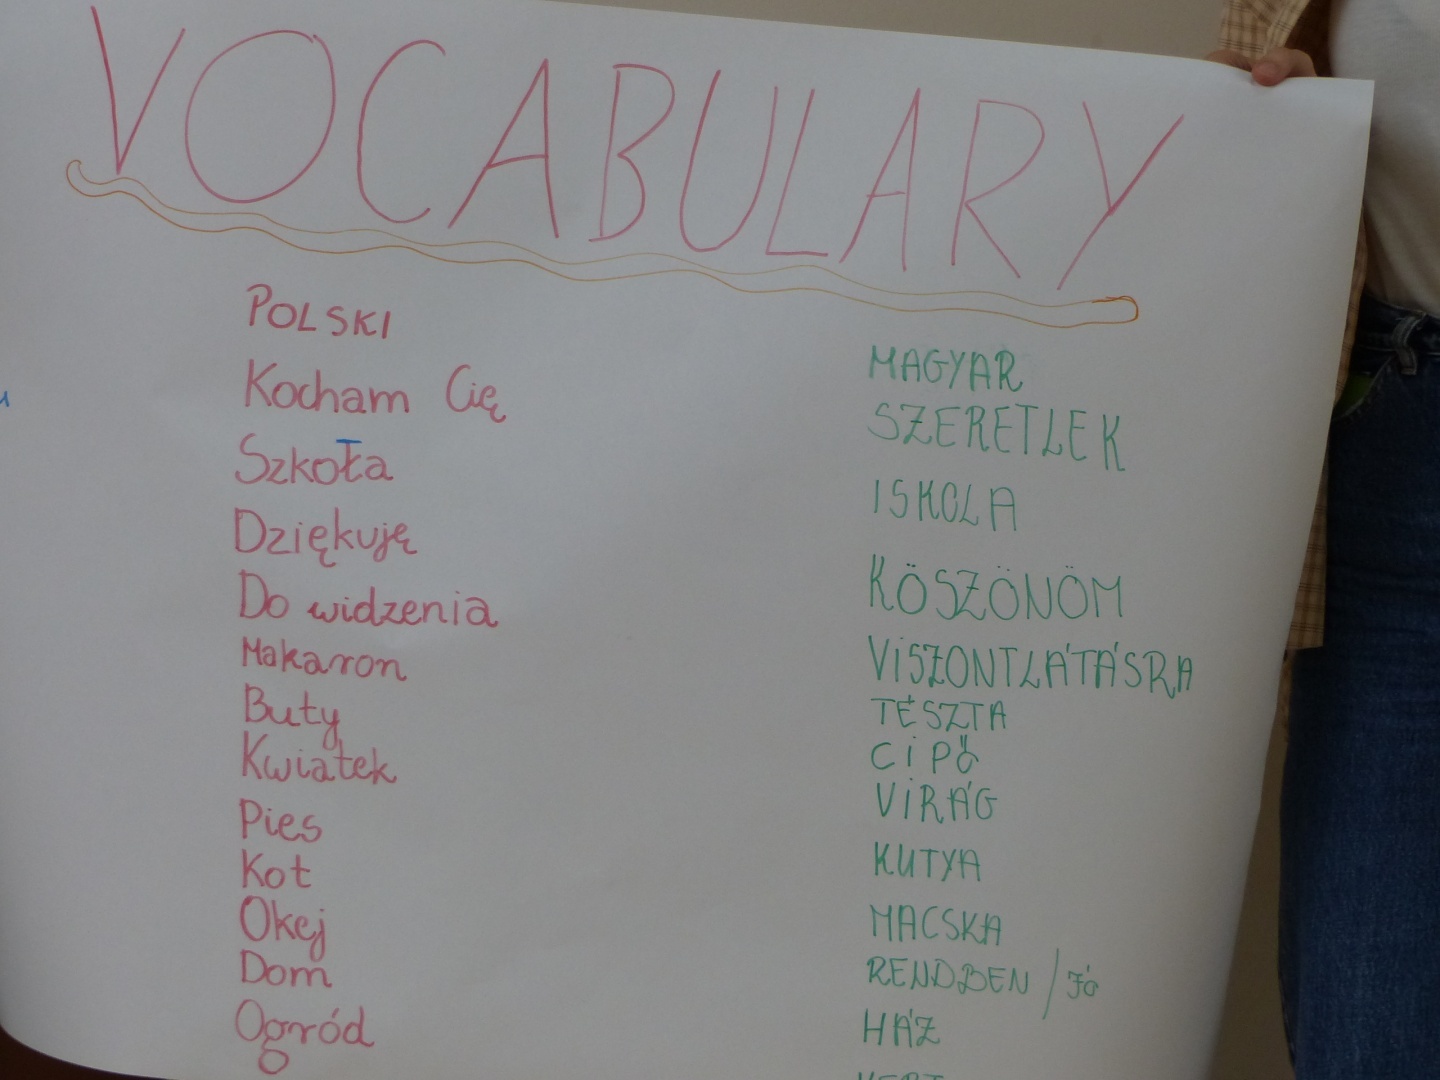 VOCABULARY
POLSKI
Kocham Cię
Szkoła
Dziękuję
Do widzenia
Makaron
Buty
Kwiatek
Pies
Kot
Okej
Dom
Ogród
MAGYAR
SZERETLEK
ISKOLA
KÖSZÖNÖM
VISZONTLÁTÁSRA
TÉSZTA
CIPŐ
VIRÁG
KUTYA
MACSKA
RENDBEN / JÓ
HÁZ